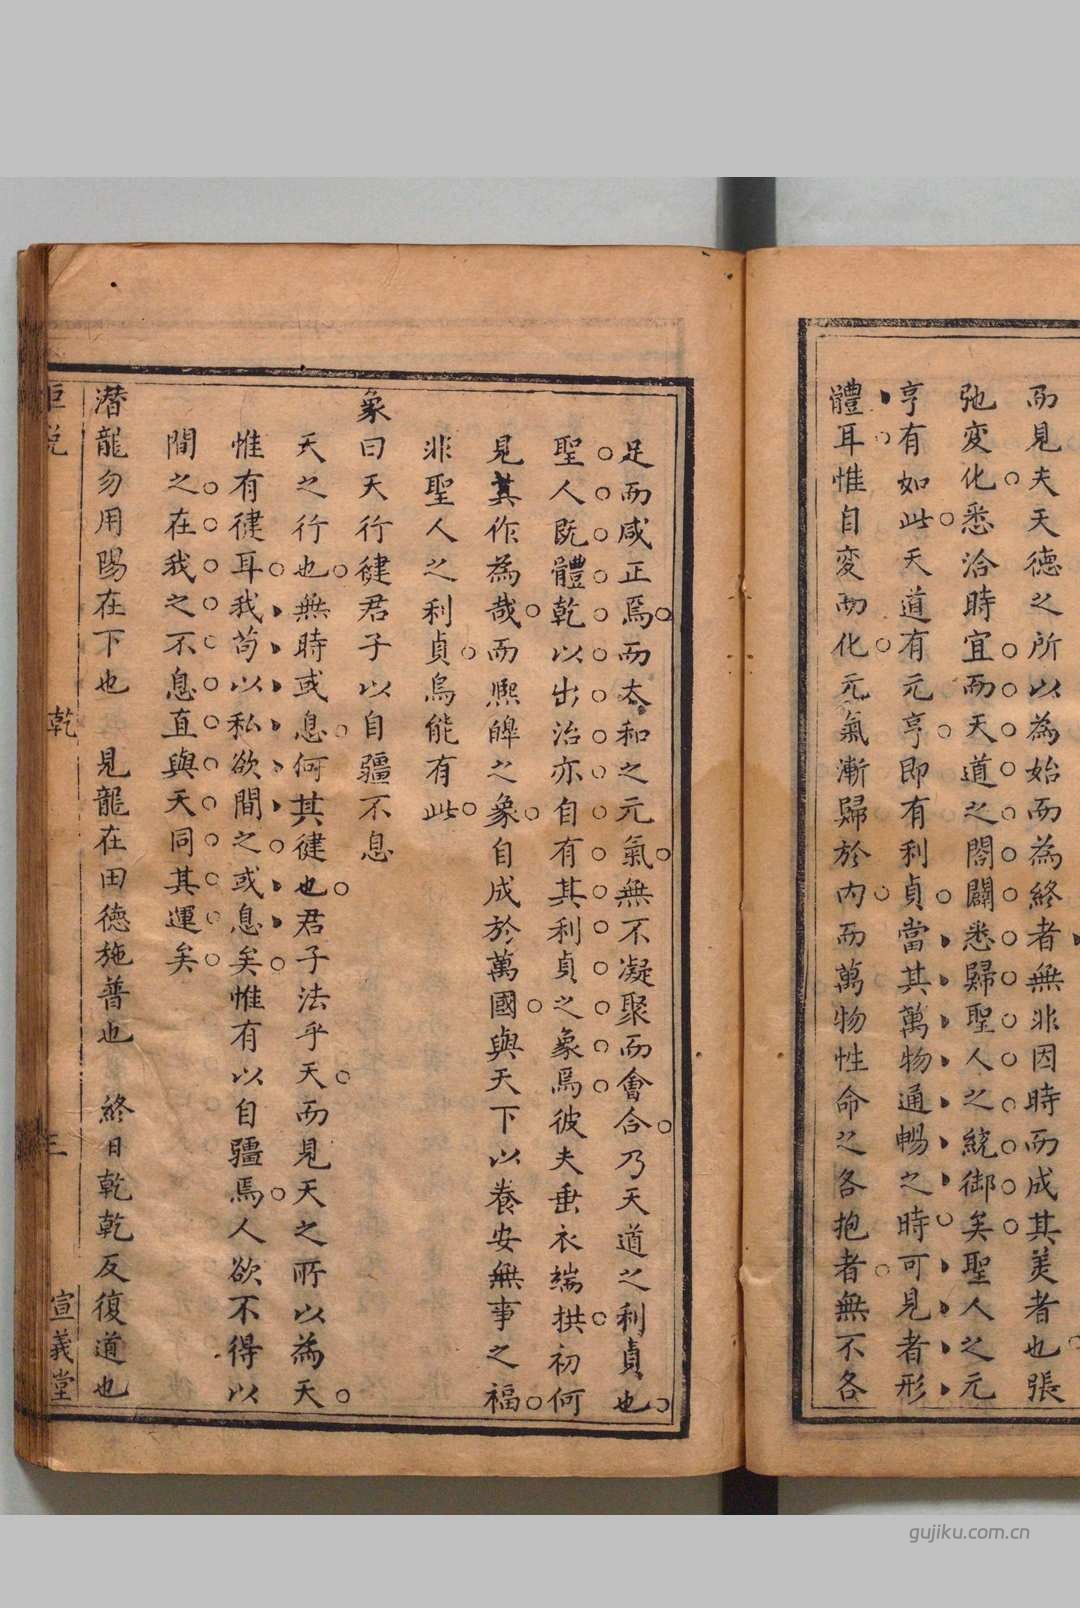 而見夫天德之所以為始而為終者無非因時而成其美者也張
弛変化悉洽時宜而天道之閤闢悉歸聖人之統御矣聖人之元
亨有如此天道有元亨即有利貞當其萬物通暢之時可見者形
體耳惟自変而化元氣漸歸於內而萬物性命之各抱者無不各
足而咸正焉而太和之元氣無不凝聚而會合乃天道之利貞也
聖人既體乾以出治亦自有其利貞之象焉彼夫垂衣端拱初何
見其作為哉而熙皞之象自成於萬國與天下以養安無事之福
非聖人之利貞烏能有此
象曰天行健君子以自疆不息
天之行也無時或息何其健也君子法乎天而見天之所以為天
惟有健耳我苟以私欲間之或息矣惟有以自疆焉人欲不得以
間之在我之不息直與天同其運矣
潛龍勿用陽在下也 見龍在田德施普也 終日乾乾反復道也
乾 三 宣義堂
gujiku.com.cn